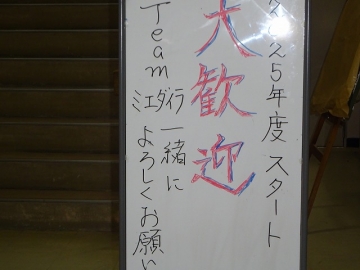 25年度 スタート
大歓迎
Team ミエダイラ 一緒に
よろしくお願い